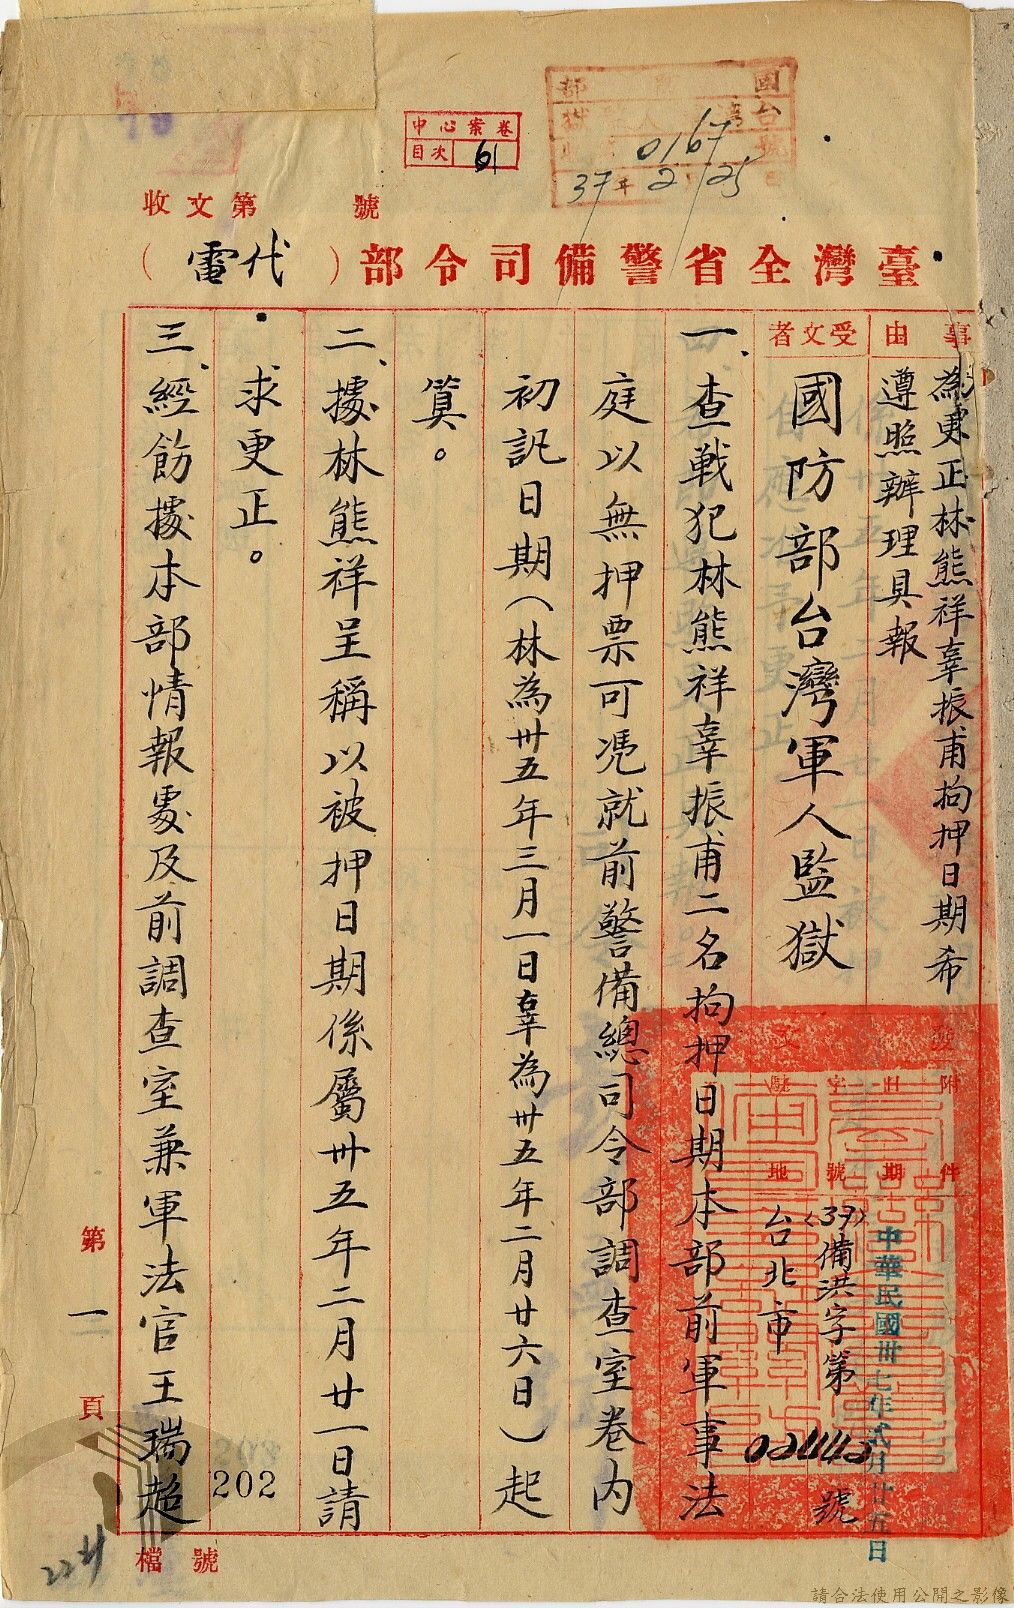 中心案卷
目次 61
0167
37年2月25日
收文第　號
臺灣全省警備司令部（代電）
事由
為更正林熊祥辜振甫拘押日期希
遵照辦理具報
受文者
國防部台灣軍人監獄
附件
日期
字號
駐地
中華民國卅七年貳月廿五日
(37)備洪字第
號
台北市
一、查戰犯林熊祥辜振甫二名拘押日期本部前軍事法
庭以無押票可憑就前警備總司令部調查室卷內
初訊日期（林為卅五年三月一日辜為卅五年二月廿六日）起
算。
二、據林熊祥呈稱以被押日期係屬卅五年二月廿一日請
求更正。
三、經飭據本部情報處及前調查室兼軍法官王瑞超
第一頁
202
檔號
請合法使用公開之影像